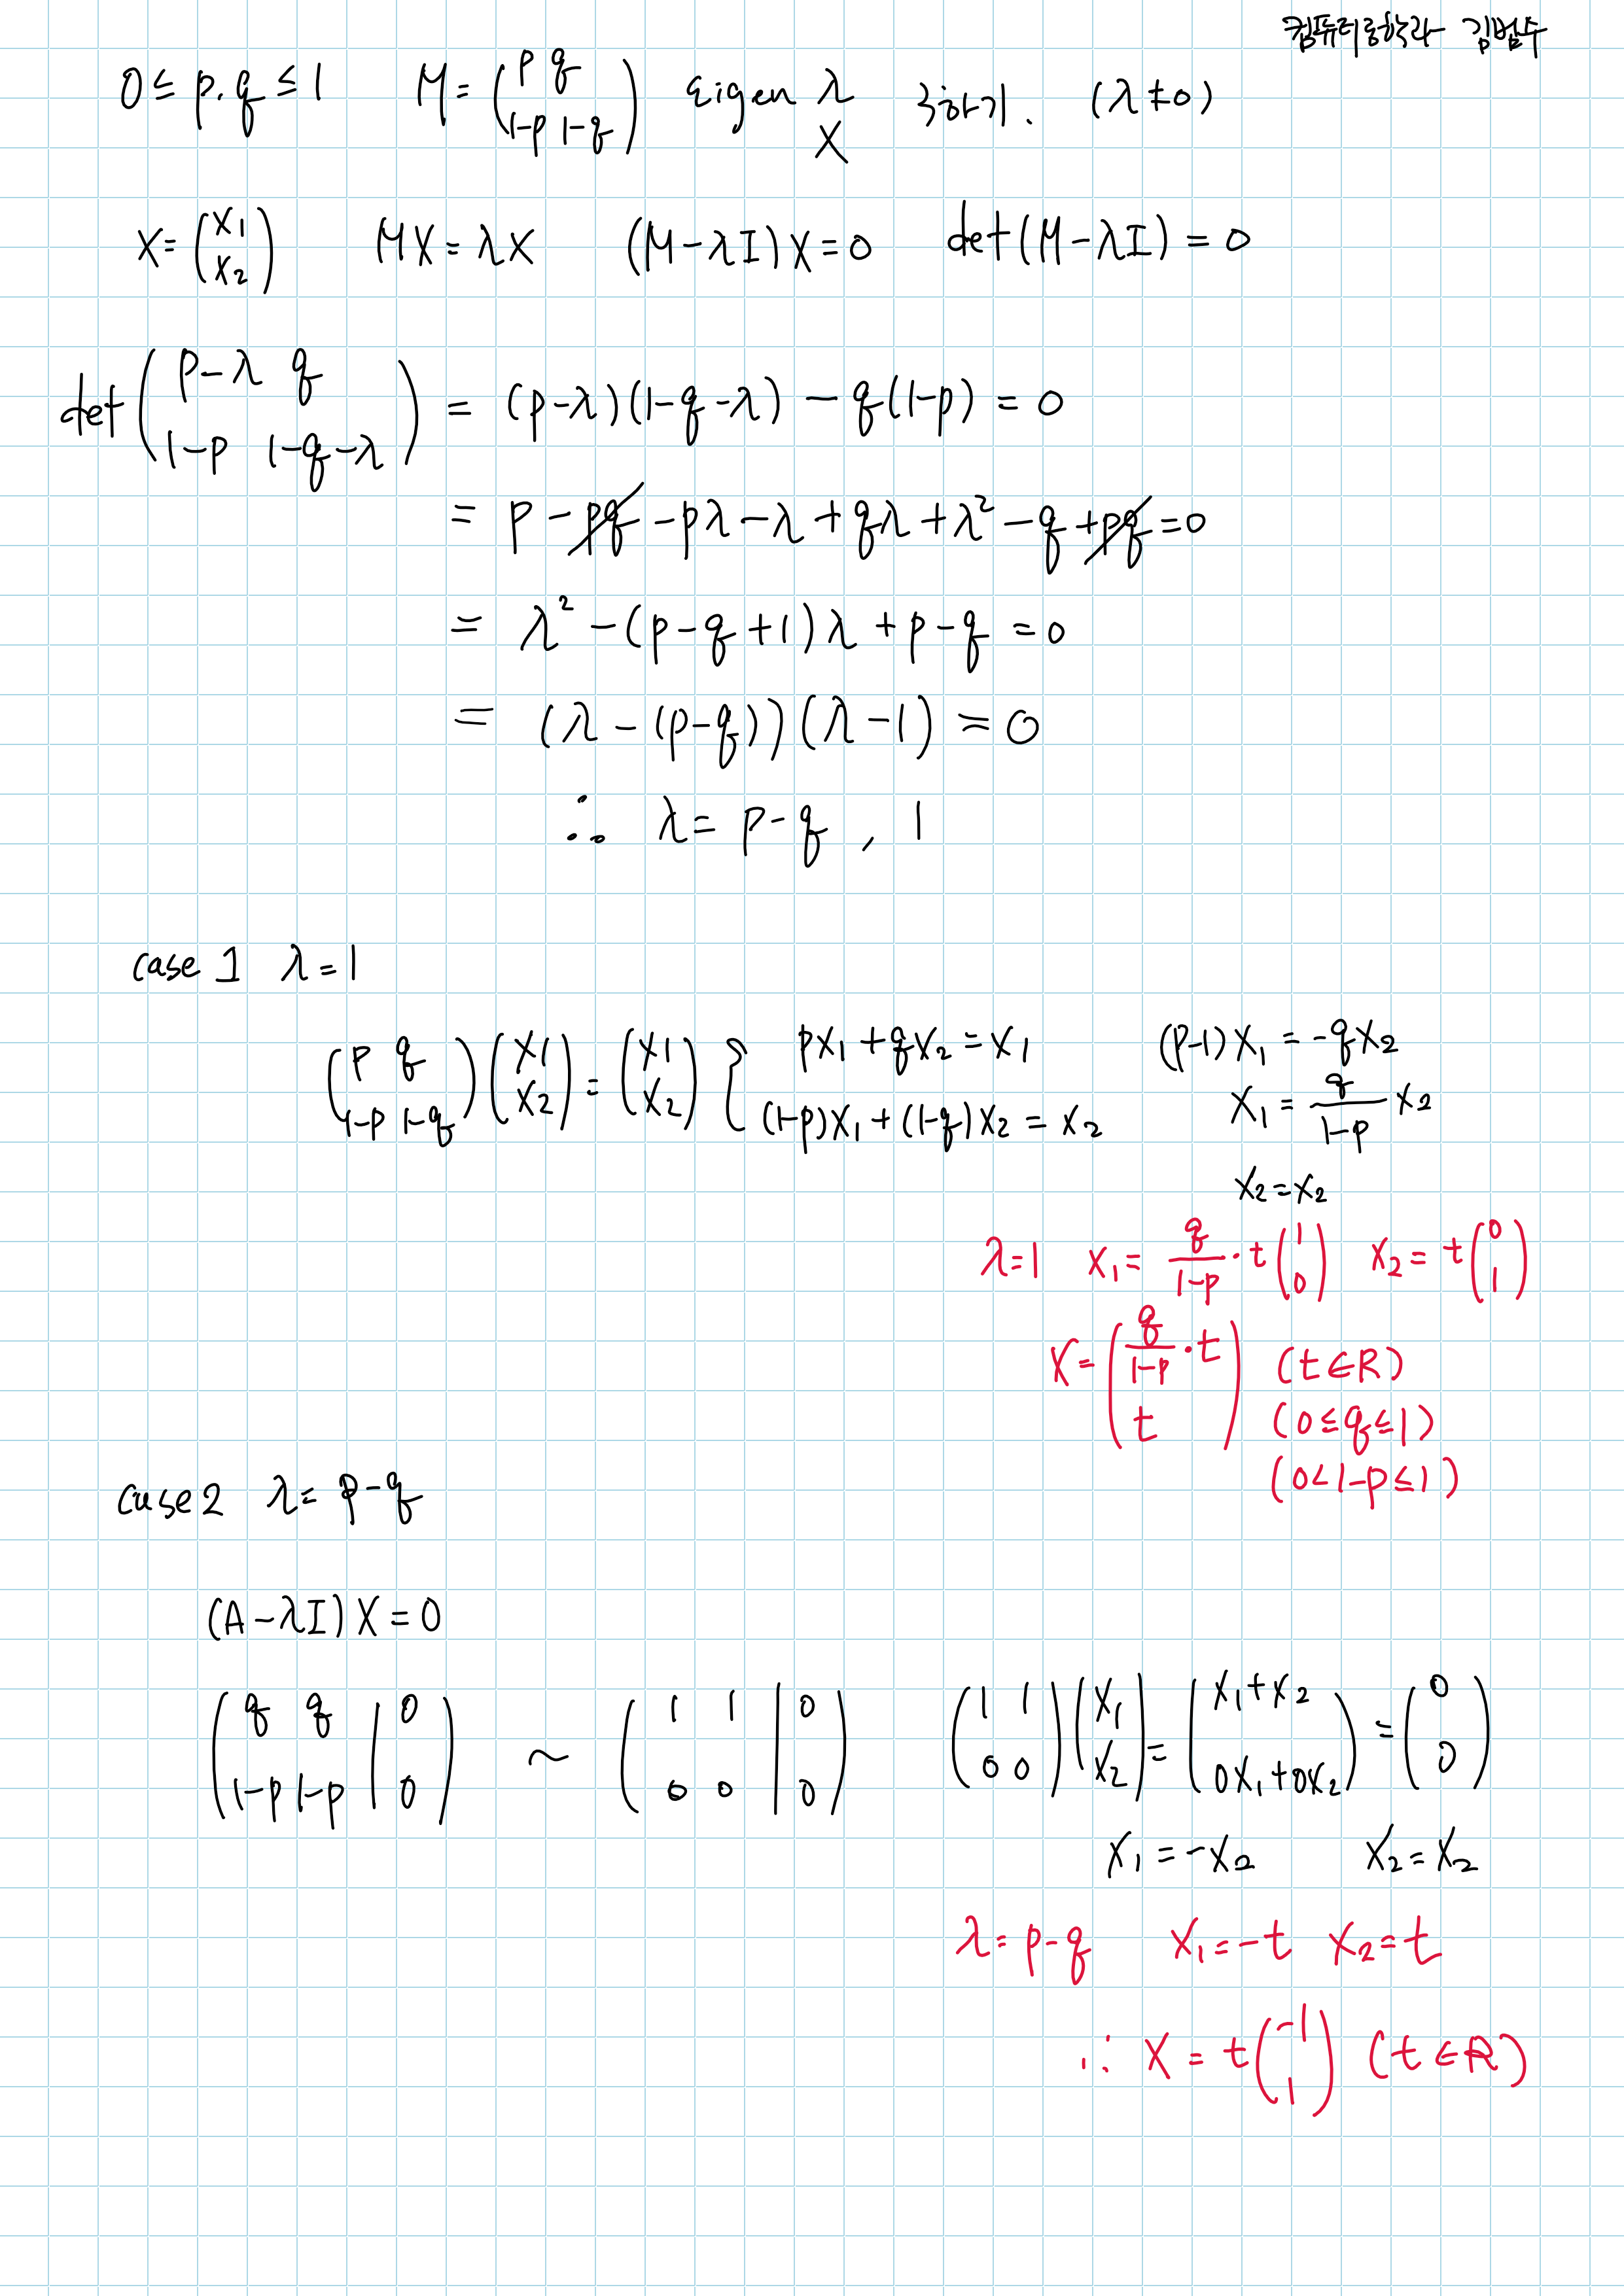 컴퓨터공학과 김범수
0 ≤ p, q ≤ 1 M = (p q / 1-p 1-q) eigen λ X 구하기. (λ ≠ 0)
X = (x1 / x2) MX = λX (M - λI)X = 0 det(M - λI) = 0
det(p-λ q / 1-p 1-q-λ) = (p-λ)(1-q-λ) - q(1-p) = 0
= p - pq - pλ - λ + qλ + λ² - q + pq = 0
= λ² - (p-q+1)λ + p-q = 0
= (λ - (p-q))(λ-1) = 0
∴ λ = p-q , 1
case 1 λ = 1
(p q / 1-p 1-q)(x1 / x2) = (x1 / x2) { px1 + qx2 = x1 (p-1)x1 = -qx2
(1-p)x1 + (1-q)x2 = x2 x1 = q/(1-p) x2
x2 = x2
λ=1 x1 = q/(1-p) · t(1 / 0) x2 = t(0 / 1)
X = (q/(1-p) · t / t) (t ∈ R)
(0 ≤ q ≤ 1)
(0 < 1-p ≤ 1)
case 2 λ = p-q
(A - λI)X = 0
(q q | 0 / 1-p 1-p | 0) ~ (1 1 | 0 / 0 0 | 0) (1 1 / 0 0)(x1 / x2) = (x1+x2 / 0x1+0x2) = (0 / 0)
x1 = -x2 x2 = x2
λ = p-q x1 = -t x2 = t
∴ X = t(-1 / 1) (t ∈ R)